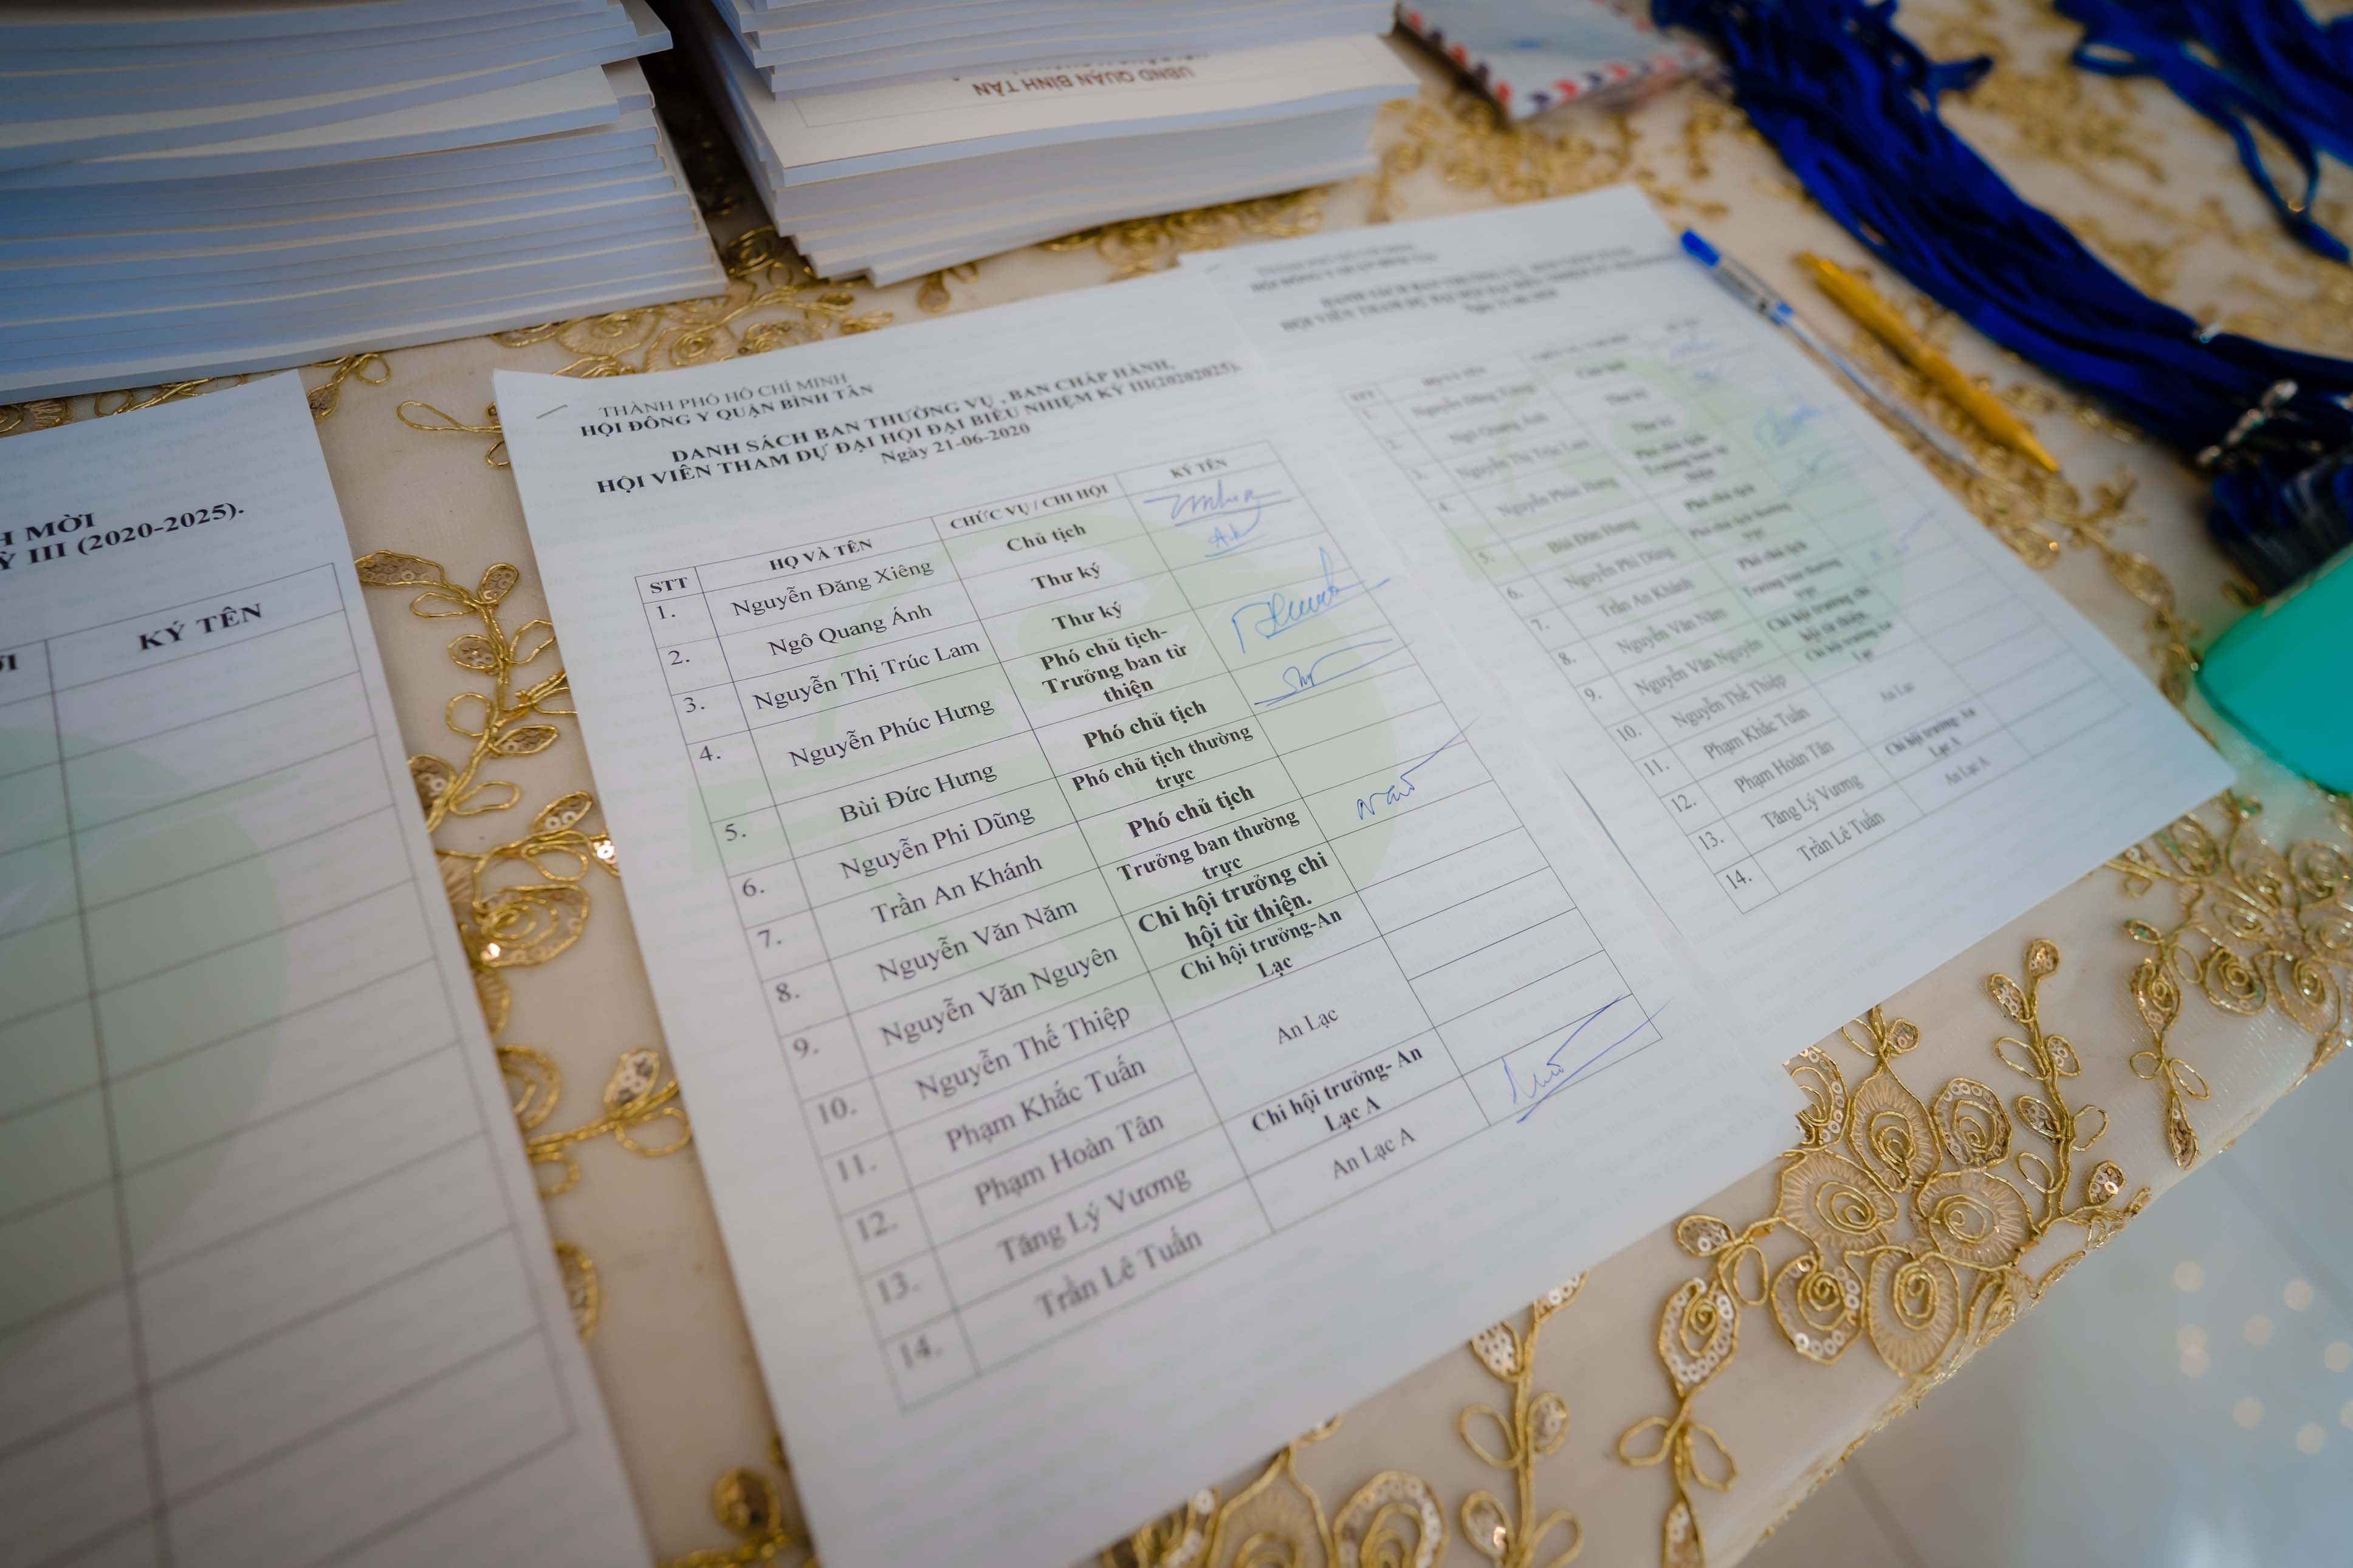 UBND QUẬN BÌNH TÂN
H MỜI
Ỳ III (2020-2025).
KÝ TÊN
THÀNH PHỐ HỒ CHÍ MINH
HỘI ĐÔNG Y QUẬN BÌNH TÂN
DANH SÁCH BAN THƯỜNG VỤ , BAN CHẤP HÀNH,
HỘI VIÊN THAM DỰ ĐẠI HỘI ĐẠI BIỂU NHIỆM KỲ III(20202025).
Ngày 21-06-2020
STT HỌ VÀ TÊN CHỨC VỤ / CHI HỘI KÝ TÊN
1. Nguyễn Đăng Xiêng Chủ tịch
2. Ngô Quang Ánh Thư ký
3. Nguyễn Thị Trúc Lam Thư ký
4. Nguyễn Phúc Hưng Phó chủ tịch-
Trưởng ban từ
thiện
5. Bùi Đức Hưng Phó chủ tịch
6. Nguyễn Phi Dũng Phó chủ tịch thường
trực
7. Trần An Khánh Phó chủ tịch
8. Nguyễn Văn Năm Trưởng ban thường
trực
9. Nguyễn Văn Nguyên Chi hội trưởng chi
hội từ thiện.
10. Nguyễn Thế Thiệp Chi hội trưởng-An
Lạc
11. Phạm Khắc Tuấn An Lạc
12. Phạm Hoàn Tân
13. Tăng Lý Vương Chi hội trưởng- An
Lạc A
14. Trần Lê Tuấn An Lạc A
STT
1. Nguyễn Đăng Xiêng Chủ tịch
2. Ngô Quang Ánh Thư ký
3. Nguyễn Thị Trúc Lam Thư ký
4. Nguyễn Phúc Hưng Phó chủ tịch-
Trưởng ban từ
thiện
5. Bùi Đức Hưng Phó chủ tịch
6. Nguyễn Phi Dũng Phó chủ tịch thường
trực
7. Trần An Khánh Phó chủ tịch
8. Nguyễn Văn Năm Trưởng ban thường
trực
9. Nguyễn Văn Nguyên Chi hội trưởng chi
hội từ thiện.
10. Nguyễn Thế Thiệp Chi hội trưởng-An
Lạc
11. Phạm Khắc Tuấn An Lạc
12. Phạm Hoàn Tân
13. Tăng Lý Vương Chi hội trưởng- An
Lạc A
14. Trần Lê Tuấn An Lạc A